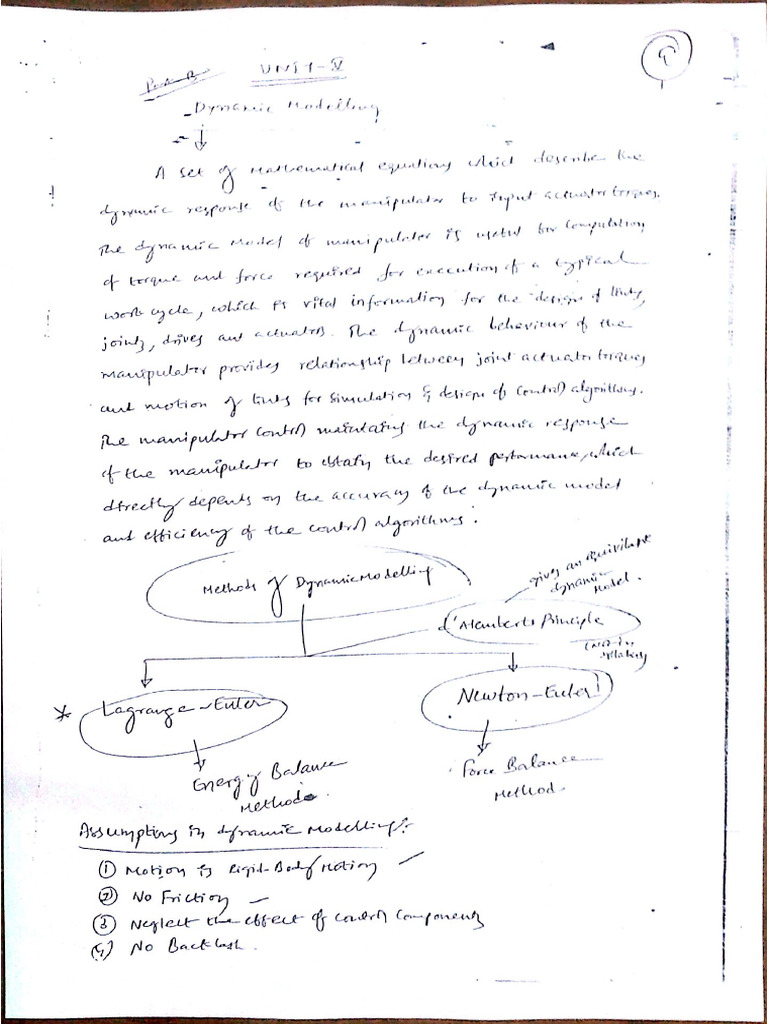 Part-B
UNIT-V
9
Dynamic Modelling
A set of Mathematical equations which describe the
dynamic response of the manipulator to input actuator torques.
The dynamic Model of manipulator is useful for computation
of torque and force required for execution of a typical
work cycle, which is vital information for the design of links,
joints, drives and actuators. The dynamic behaviour of the
manipulator provides relationship between joint actuator torques
and motion of links for simulation & design of control algorithms.
The manipulator control maintains the dynamic response
of the manipulator to obtain the desired performance, which
directly depends on the accuracy of the dynamic model
and efficiency of the control algorithms.
Methods of Dynamic Modelling
gives an equivilant
dynamic
Model.
d'Alemberts Principle
(not in
syllabus)
* Lagrange-Euler
Newton-Euler
Energy Balance
Method.
Force Balance
Method.
Assumptions in dynamic Modelling:-
① Motion is Rigid-Body Motion
② No Friction
③ Neglect the effect of control components
④ No Backlash.